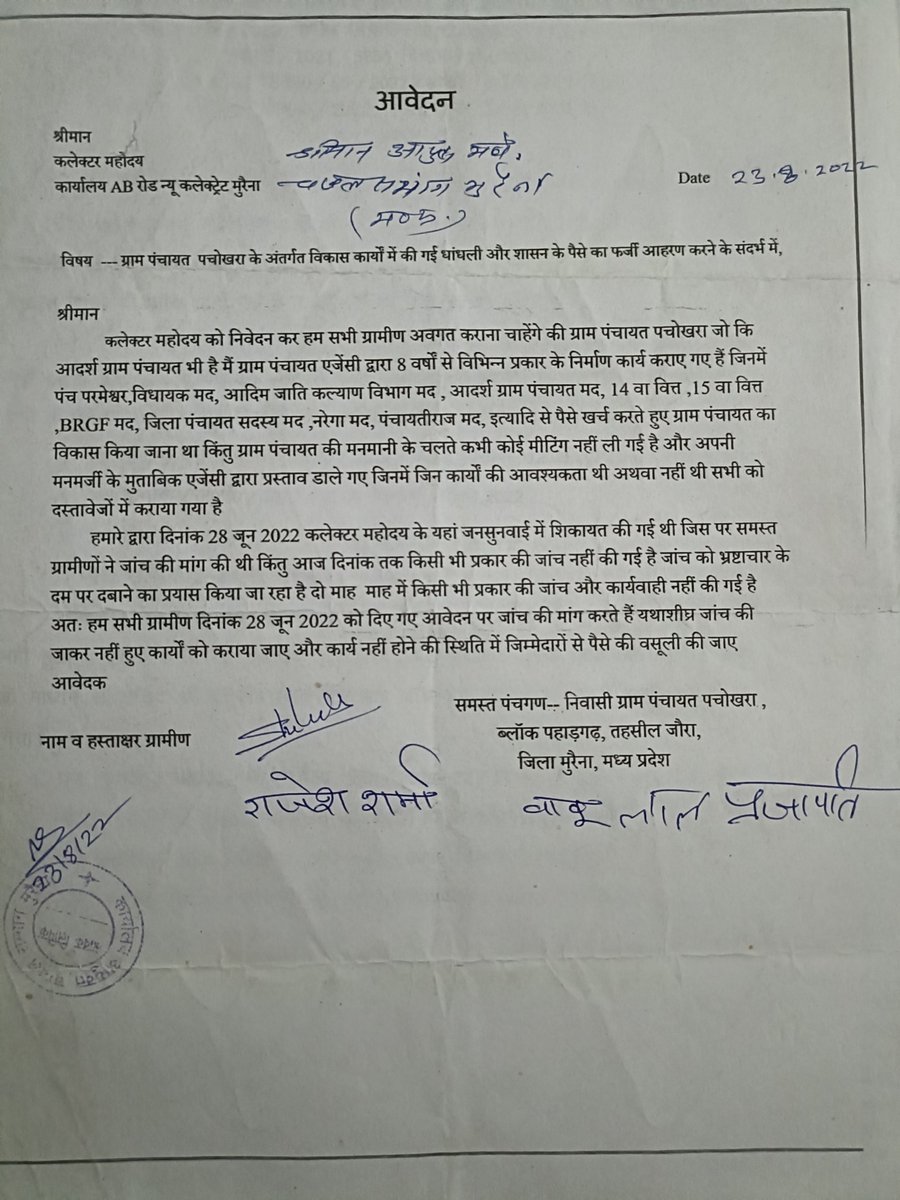 आवेदन
श्रीमान
कलेक्टर महोदय
कार्यालय AB रोड न्यू कलेक्ट्रेट मुरैना
श्रीमान आयुक्त
चम्बल संभाग मुरैना
(म०प्र०)
Date 23.8.2022
विषय --- ग्राम पंचायत पचोखरा के अंतर्गत विकास कार्यों में की गई धांधली और शासन के पैसे का फर्जी आहरण करने के संदर्भ में,
श्रीमान
कलेक्टर महोदय को निवेदन कर हम सभी ग्रामीण अवगत कराना चाहेंगे की ग्राम पंचायत पचोखरा जो कि
आदर्श ग्राम पंचायत भी है मैं ग्राम पंचायत एजेंसी द्वारा 8 वर्षों से विभिन्न प्रकार के निर्माण कार्य कराए गए हैं जिनमें
पंच परमेश्वर,विधायक मद, आदिम जाति कल्याण विभाग मद , आदर्श ग्राम पंचायत मद, 14 वा वित्त ,15 वा वित्त
,BRGF मद, जिला पंचायत सदस्य मद ,नरेगा मद, पंचायतीराज मद, इत्यादि से पैसे खर्च करते हुए ग्राम पंचायत का
विकास किया जाना था किंतु ग्राम पंचायत की मनमानी के चलते कभी कोई मीटिंग नहीं ली गई है और अपनी
मनमर्जी के मुताबिक एजेंसी द्वारा प्रस्ताव डाले गए जिनमें जिन कार्यों की आवश्यकता थी अथवा नहीं थी सभी को
दस्तावेजों में कराया गया है
हमारे द्वारा दिनांक 28 जून 2022 कलेक्टर महोदय के यहां जनसुनवाई में शिकायत की गई थी जिस पर समस्त
ग्रामीणों ने जांच की मांग की थी किंतु आज दिनांक तक किसी भी प्रकार की जांच नहीं की गई है जांच को भ्रष्टाचार के
दम पर दबाने का प्रयास किया जा रहा है दो माह माह में किसी भी प्रकार की जांच और कार्यवाही नहीं की गई है
अतः हम सभी ग्रामीण दिनांक 28 जून 2022 को दिए गए आवेदन पर जांच की मांग करते हैं यथाशीघ्र जांच की
जाकर नहीं हुए कार्यों को कराया जाए और कार्य नहीं होने की स्थिति में जिम्मेदारों से पैसे की वसूली की जाए
आवेदक
समस्त पंचगण-- निवासी ग्राम पंचायत पचोखरा ,
ब्लॉक पहाड़गढ़, तहसील जौरा,
जिला मुरैना, मध्य प्रदेश
नाम व हस्ताक्षर ग्रामीण
राजेश शर्मा
बाबू लाल प्रजापति
23/8/22
कार्यालय आयुक्त चम्बल संभाग मुरैना